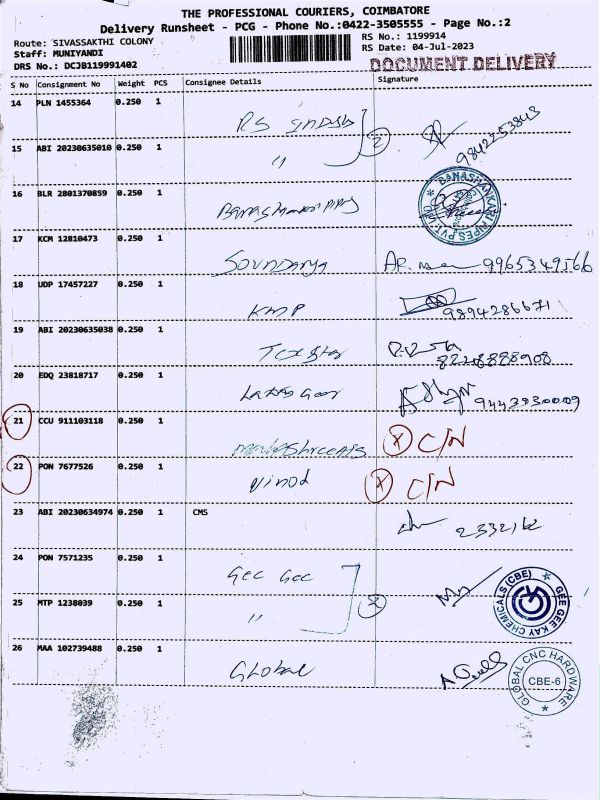 THE PROFESSIONAL COURIERS, COIMBATORE
Delivery Runsheet - PCG - Phone No.:0422-3505555 - Page No.:2
Route: SIVASSAKTHI COLONY
Staff: MUNIYANDI
DRS No.: DCJB119991402
RS No.: 1199914
RS Date: 04-Jul-2023
DOCUMENT DELIVERY
S No Consignment No Weight PCS Consignee Details Signature
14 PLN 1455364 0.250 1
15 ABI 20230635010 0.250 1 〃 2
16 BLR 2801370859 0.250 1
BANASHANKARI PIPES PVT. LTD.
17 KCM 12810473 0.250 1 Soundarya 9965349566
18 UDP 17457227 0.250 1 KMP 9894286671
19 ABI 20230635038 0.250 1
20 EDQ 23818717 0.250 1 9443930009
21 CCU 911103118 0.250 1 X C/N
22 PON 7677526 0.250 1 Vinod X C/N
23 ABI 20230634974 0.250 1 CMS
24 PON 7571235 0.250 1 Gee Gee
25 MTP 1238039 0.250 1 〃 2
GEE GEE KAY CHEMICALS (CBE)
26 MAA 102739488 0.250 1 Global
GLOBAL CNC HARDWARE
CBE-6